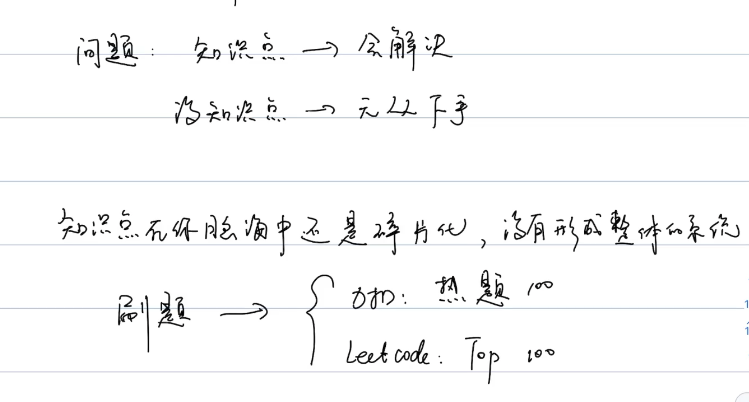 问题: 知识点 → 会解决
没知识点 → 无从下手
知识点在你脑海中还是碎片化, 没有形成整体的系统
刷题 → { 力扣: 热题 100
Leetcode: Top 100